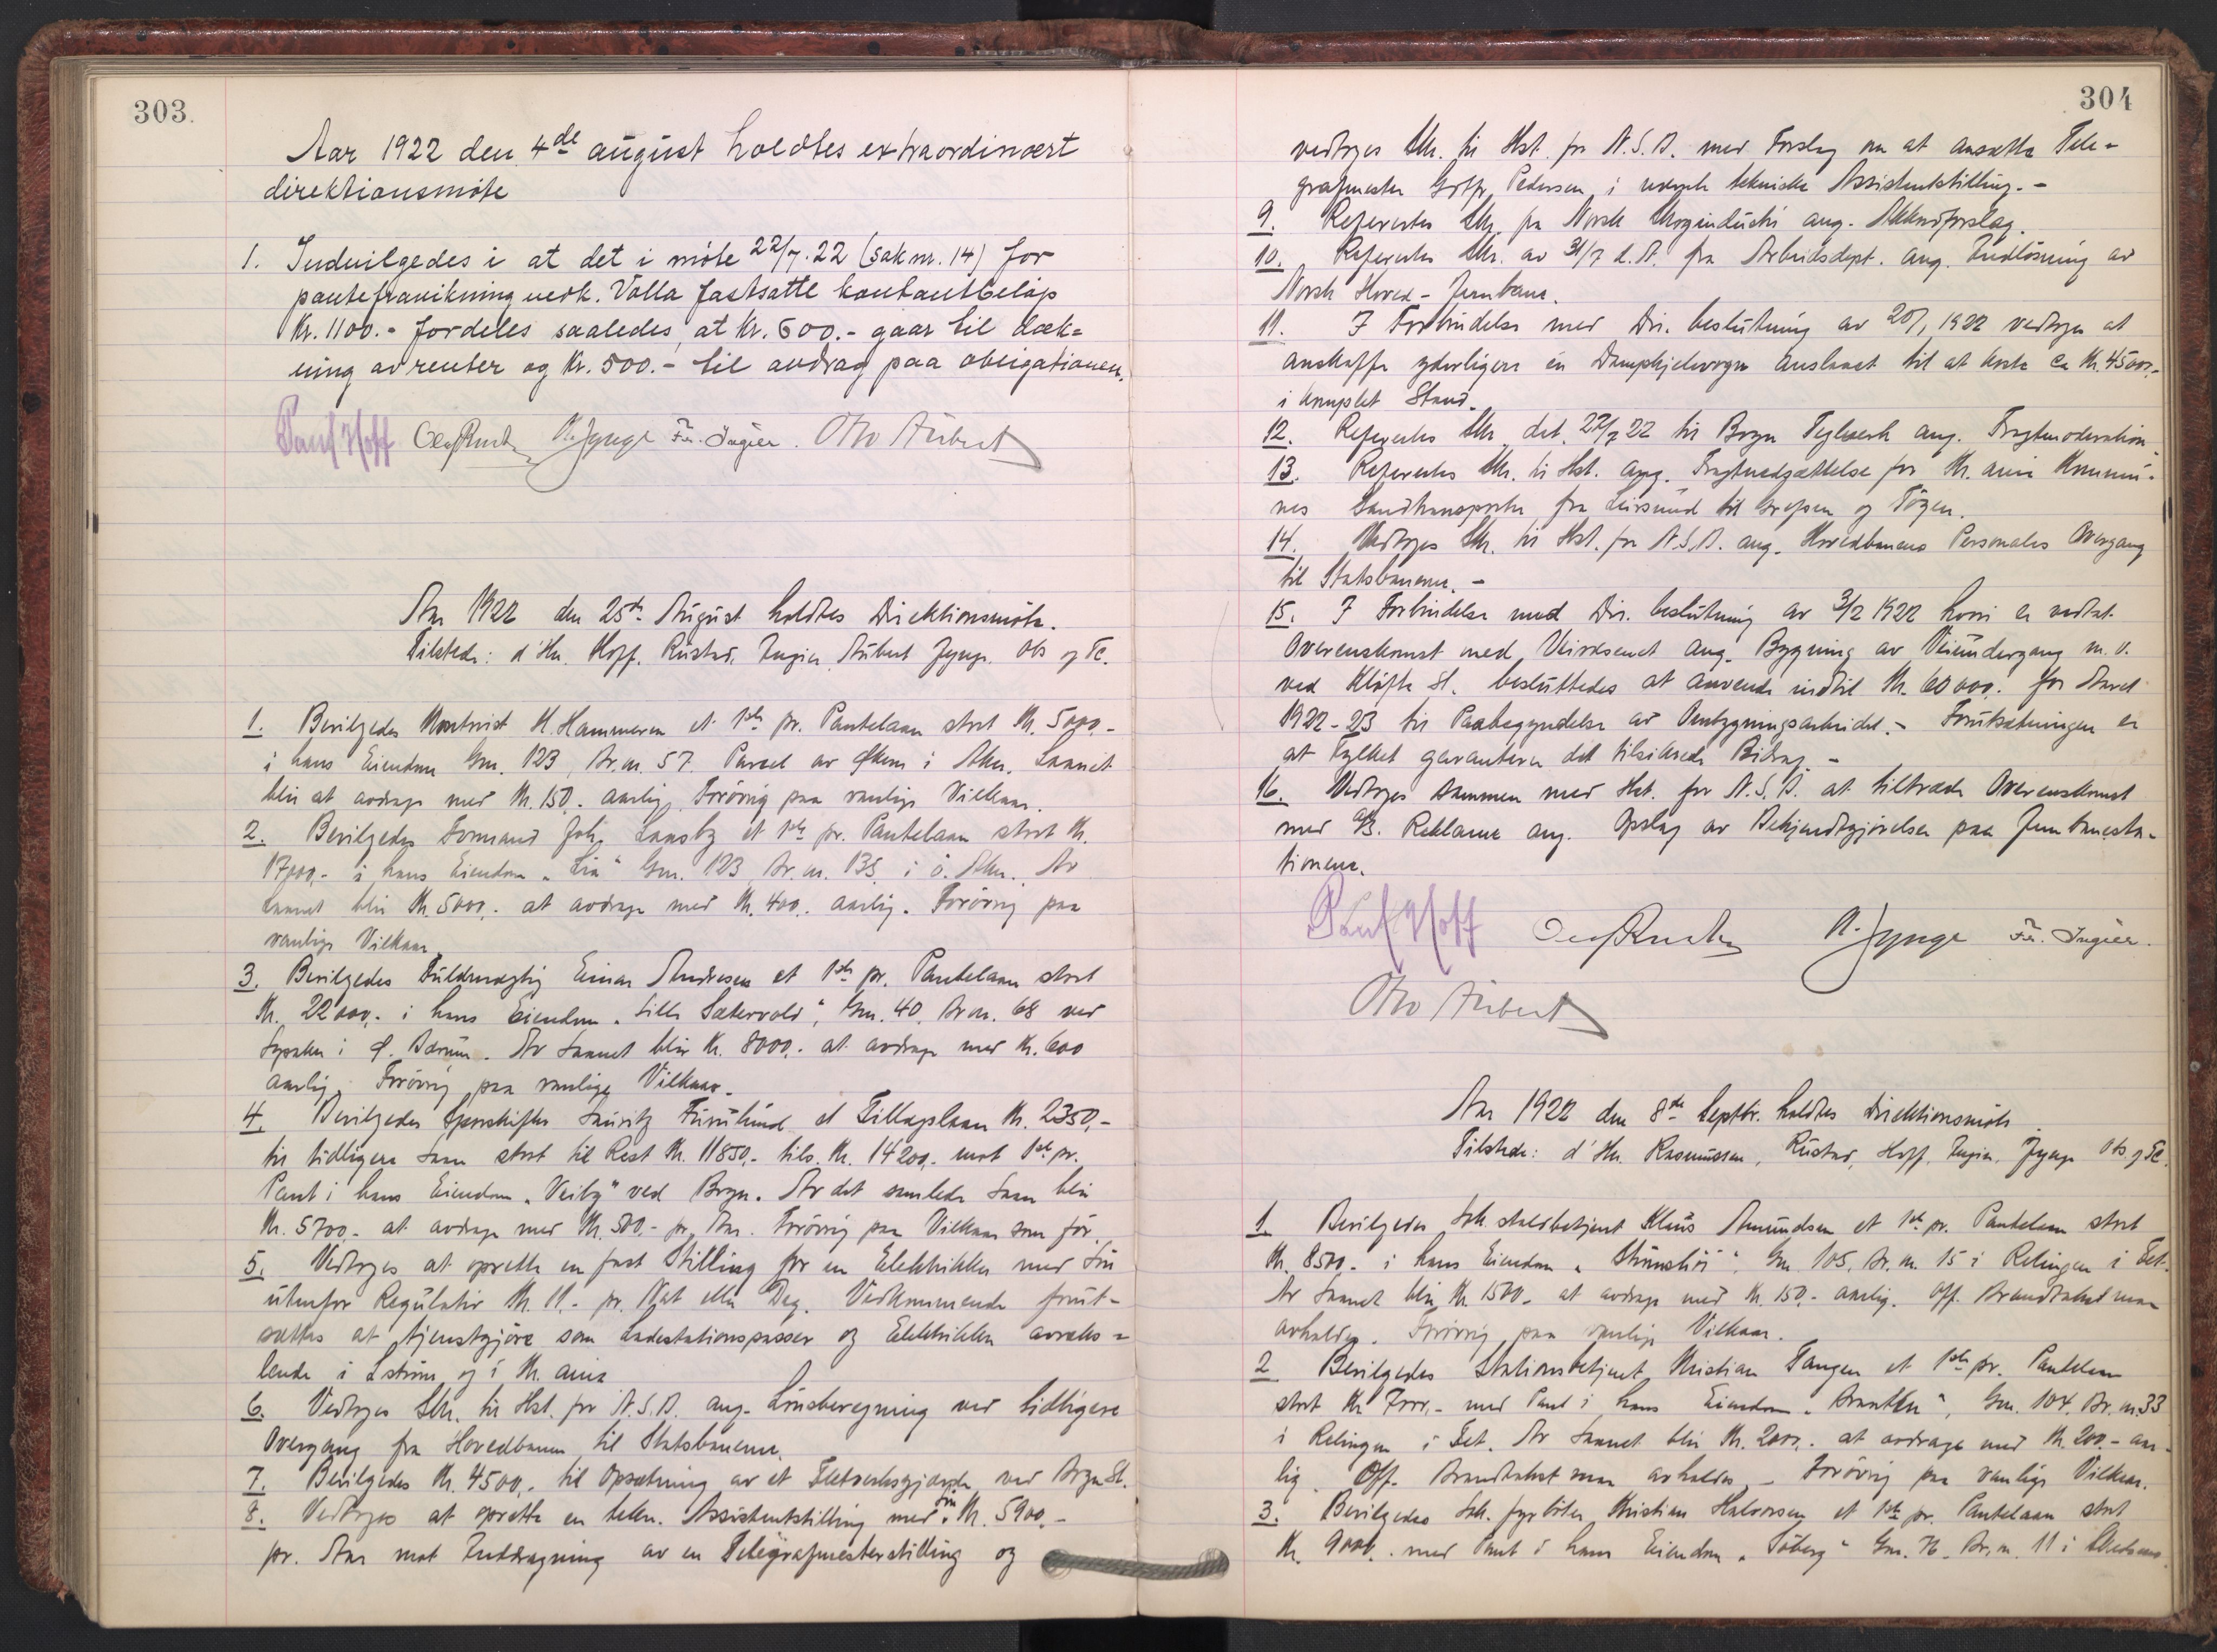 303.
Aar 1922 den 4de august holdtes extraordinært
direktionsmøte
1. Indvilgedes i at det i møte 22/7.22 (sak nr. 14) for
pantefravikning vedk. Volla fastsatte kontantbeløp
Kr. 1100.- fordeles saaledes, at kr. 600.- gaar til dæk=
ning av renter og kr. 500.- til avdrag paa obligationen.
Paul Hoff Olaf Rustad N. Jynge Fr. Ingier. Otto Aubert
Aar 1922 den 25de August holdtes Direktionsmöte.
Tilstede: d'Hr. Hoff, Rustad, Ingier, Aubert, Jynge. Obs og Tc.
1. Bevilgedes Kontorist H. Hammeren et 1ste pr. Pantelaan stort Kr. 5000,-
i hans Eiendom Gnr. 123, Br. nr. 57. Parcel av Økern i Aker. Laanet
blir at avdrage med Kr. 150.- aarlig. Forövrig paa vanlige Vilkaar.
2. Bevilgedes Formand Joh. Laasby et 1ste pr. Pantelaan stort Kr.
17000,- i hans Eiendom "Lia" Gnr. 123, Br. nr. 135 i ö. Aker. Av
Laanet blir Kr. 5000,- at avdrage med Kr. 400,- aarlig. Forövrig paa
vanlige Vilkaar.
3. Bevilgedes Fuldmægtig Einar Andresen et 1ste pr. Pantelaan stort
Kr. 22000,- i hans Eiendom "Lille Sætervold", Gnr. 40, Br. nr. 68 ved
Lysaker i Ø. Bærum. Av Laanet blir Kr. 8000,- at avdrage med Kr. 600
aarlig. Forövrig paa vanlige Vilkaar.
4. Bevilgedes Sporskifter Lauritz Furulund et Tillægslaan Kr. 2350,-
til tidligere Laan stort til Rest Kr. 11850,- tils. Kr. 14200,- mot 1ste pr.
Pant i hans Eiendom "Veiby" ved Bryn. Av det samlede Laan blir
Kr. 5700,- at avdrage med Kr. 500,- pr. Aar. Forövrig paa Vilkaar som för.
5. Vedtoges at oprette en fast Stilling for en Elektriker med Lön
utenfor Regulativ Kr. 11,- pr. Nat eller Dag. Vedkommende forut-
sættes at tjenstgjöre som Ladestationspasser og Elektriker avveks=
lende i Lström og i Kr.ania
6. Vedtoges Skr. til Hst. for N.S.B. ang. Lönsberegning ved tidligere
Overgang fra Hovedbanen til Statsbanerne.
7. Bevilgedes Kr. 4500,- til Opsætning av et Fletverksgjærde ved Bryn St.
8. Vedtoges at oprette en tekn. Assistentstilling med Lön Kr. 5900,-
pr. Aar mot Inddragning av en Telegrafmesterstilling og
304
vedtoges Skr. til Hst. for N.S.B. med Forslag om at ansætte Tele-
grafmester Gotfr. Pedersen i nævnte tekniske Assistentstilling.-
9. Refereertes Skr. fra Norsk Skogindustri ang.
10. Refereertes Skr. av 31/7 d.A. fra Arbeidsdept. ang. Indlösning av
Norsk Hoved-Jernbane.
11. I Forbindelse med Dir. beslutning av 20/1 1922 vedtoges at
anskaffe yderligere en Dampkjelevogn anslaaet til at koste ca Kr. 4500,-
i komplet Stand.
12. Refereertes Skr. dat. 22/7 22 til Bryn Teglverk ang. Fragtmoderation
13. Refereertes Skr. til Hst. ang. Fragtnedsættelse for Kr.ania Kommu-
nes Sandtransporter fra Leirsund til Grefsen og Töyen.
14. Vedtoges Skr. til Hst. for N.S.B. ang. Hovedbanens Personales Overgang
til Statsbanerne.-
15. I Forbindelse med Dir. beslutning av 3/2 1922 hvori er vedtat
Overenskomst med Veivæsenet ang. Bygning av Veiundergang m.v.
ved Kløfta St. besluttedes at anvende indtil Kr. 60000,- for Aaret
1922-23 til Paabegyndelse av Ombygningsarbeidet.- Forutsætningen er
at Fylket garanterer det tilsikrede Bidrag.-
16. Vedtoges sammen med Hst. for N.S.B. at tiltræde Overenskomst
med A/S. Reklame ang. Opslag av Bekjendtgjörelser paa Jernbanesta-
tionene.
Paul Hoff Olaf Rustad N. Jynge Fr. Ingier.
Otto Aubert
Aar 1922 den 8de Septbr. holdtes Direktionsmöte
Tilstede: d'Hr. Rasmussen, Rustad, Hoff, Ingier, Jynge Obs og Tc.
1. Bevilgedes Lok. staldbetjent Klaus Amundsen et 1ste pr. Pantelaan stort
Kr. 8500,- i hans Eiendom Gnr. 105, Br. nr. 15 i Relingen i Fet.
Av Laanet blir Kr. 1500,- at avdrage med Kr. 150,- aarlig. Off. Brandtakst maa
avholdes. Forövrig paa vanlige Vilkaar.
2 Bevilgedes Stationsbetjent Kristian Tangen et 1ste pr. Pantelaan
stort Kr 7000,- med Pant i hans Eiendom Gnr. 104, Br. nr. 33
i Relingen i Fet. Av Laanet blir Kr. 2000,- at avdrage med Kr. 200,- aar-
lig. Off. Brandtakst maa avholdes.- Forövrig paa vanlige Vilkaar.
3. Bevilgedes Lok. fyrböter Kristian Halvorsen et 1ste pr. Pantelaan stort
Kr. 9000,- med Pant i hans Eiendom "Söberg" Gnr. 76, Br. nr. 11 i Skedsmo.